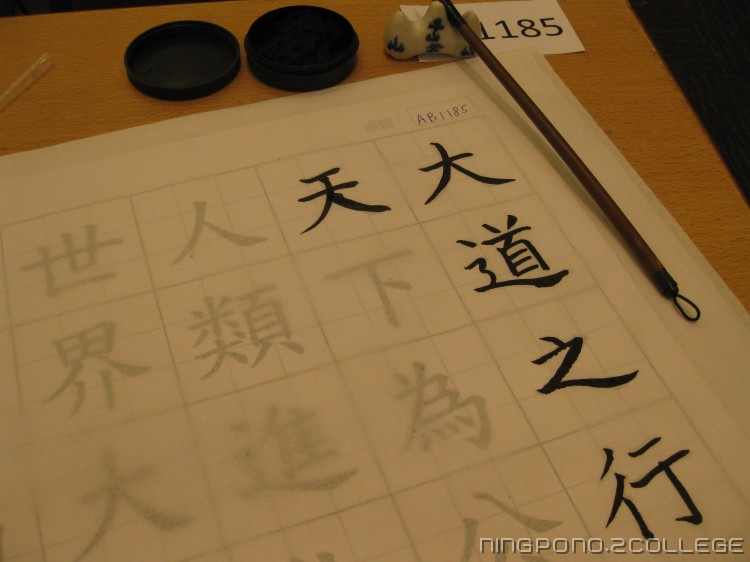 1185
AB1185
大道之行
天下為公
人類進
世界大
NINGPONO.2COLLEGE